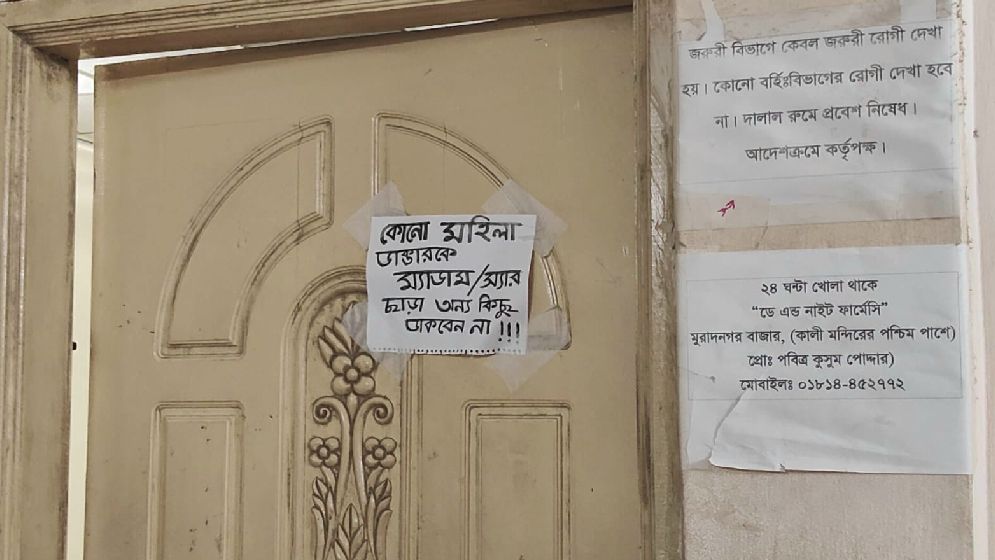 কোনো মহিলা
ডাক্তারকে
ম্যাডাম/স্যার
ছাড়া অন্য কিছু
ডাকবেন না !!!
জরুরী বিভাগে কেবল জরুরী রোগী দেখা
হয়। কোনো বর্হিঃবিভাগের রোগী দেখা হবে
না। দালাল রুমে প্রবেশ নিষেধ।
আদেশক্রমে কর্তৃপক্ষ।
২৪ ঘন্টা খোলা থাকে
“ডে এন্ড নাইট ফার্মেসি”
মুরাদনগর বাজার, (কালী মন্দিরের পশ্চিম পাশে)
প্রোঃ পবিত্র কুসুম পোদ্দার)
মোবাইলঃ ০১৮১৪-৪৫২৭৭২